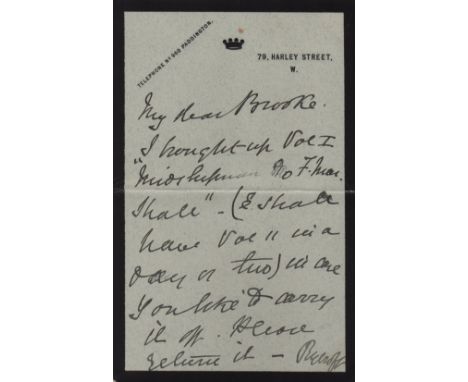 TELEPHONE Nº 960 PADDINGTON.
79, HARLEY STREET,
W.
My dear Brooke.
I brought up Vol I
"Midshipman to F. Mar
shall" - (I shall
have Vol II in a
day or two) in case
you like to carry
it off. Please
return it -